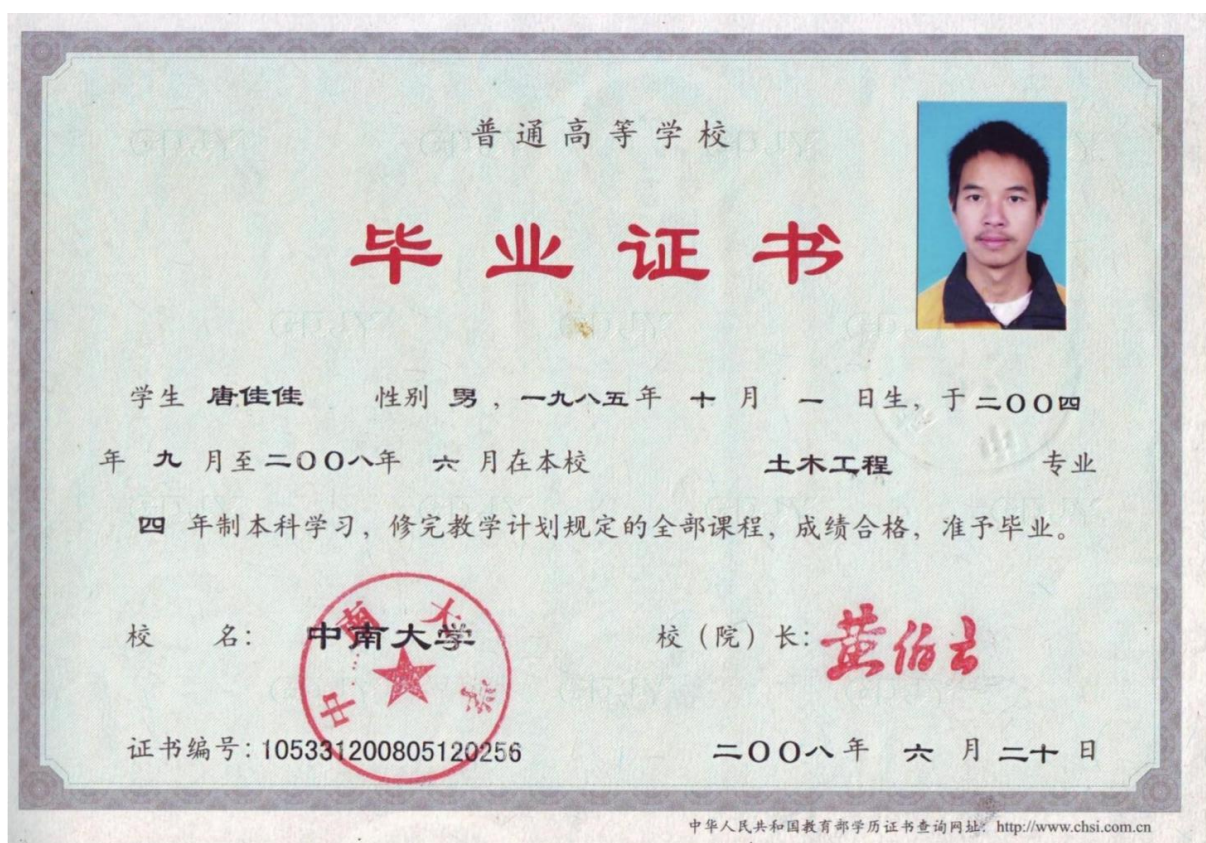 普通高等学校
毕业证书
学生 唐佳佳 性别 男，一九八五年 十 月 一 日生，于二〇〇四
年 九 月至二〇〇八年 六 月在本校 土木工程 专业
四 年制本科学习，修完教学计划规定的全部课程，成绩合格，准予毕业。
校 名：中南大学 校（院）长：黄伯云
中南大学
证书编号：105331200805120256 二〇〇八年 六 月二十日
中华人民共和国教育部学历证书查询网址：http://www.chsi.com.cn